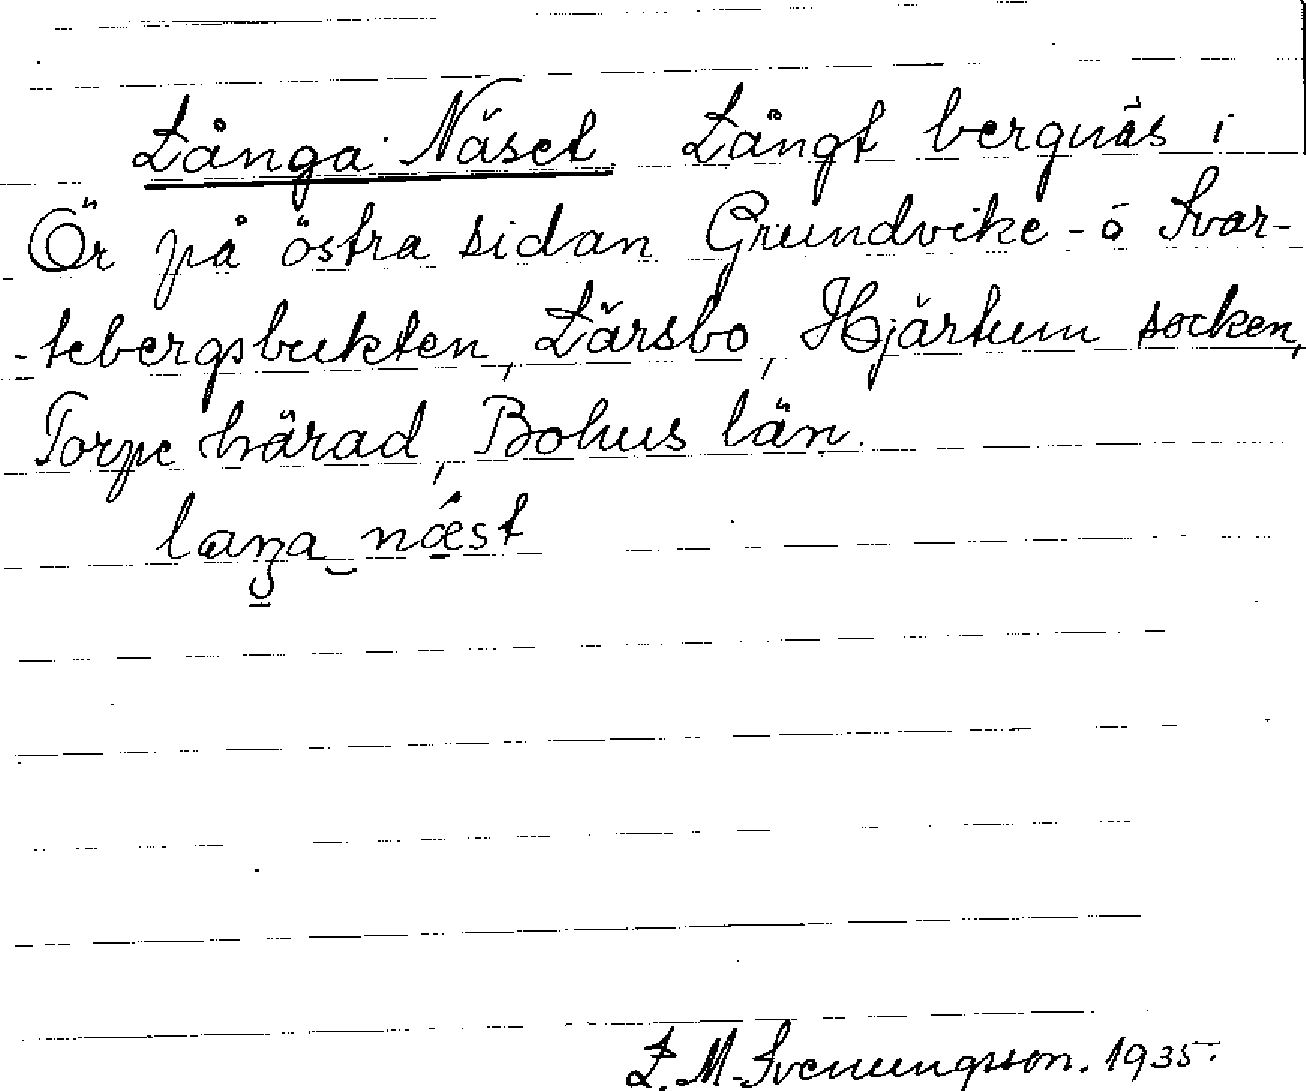 Långa Näset. Långt bergnäs i
Ör på östra sidan Grundvike- ó Svar-
-tebergsbukten, Lärsbo, Hjärtum socken,
Torpe härad, Bohus län.
næst
L. M. Svenungsson. 1935.